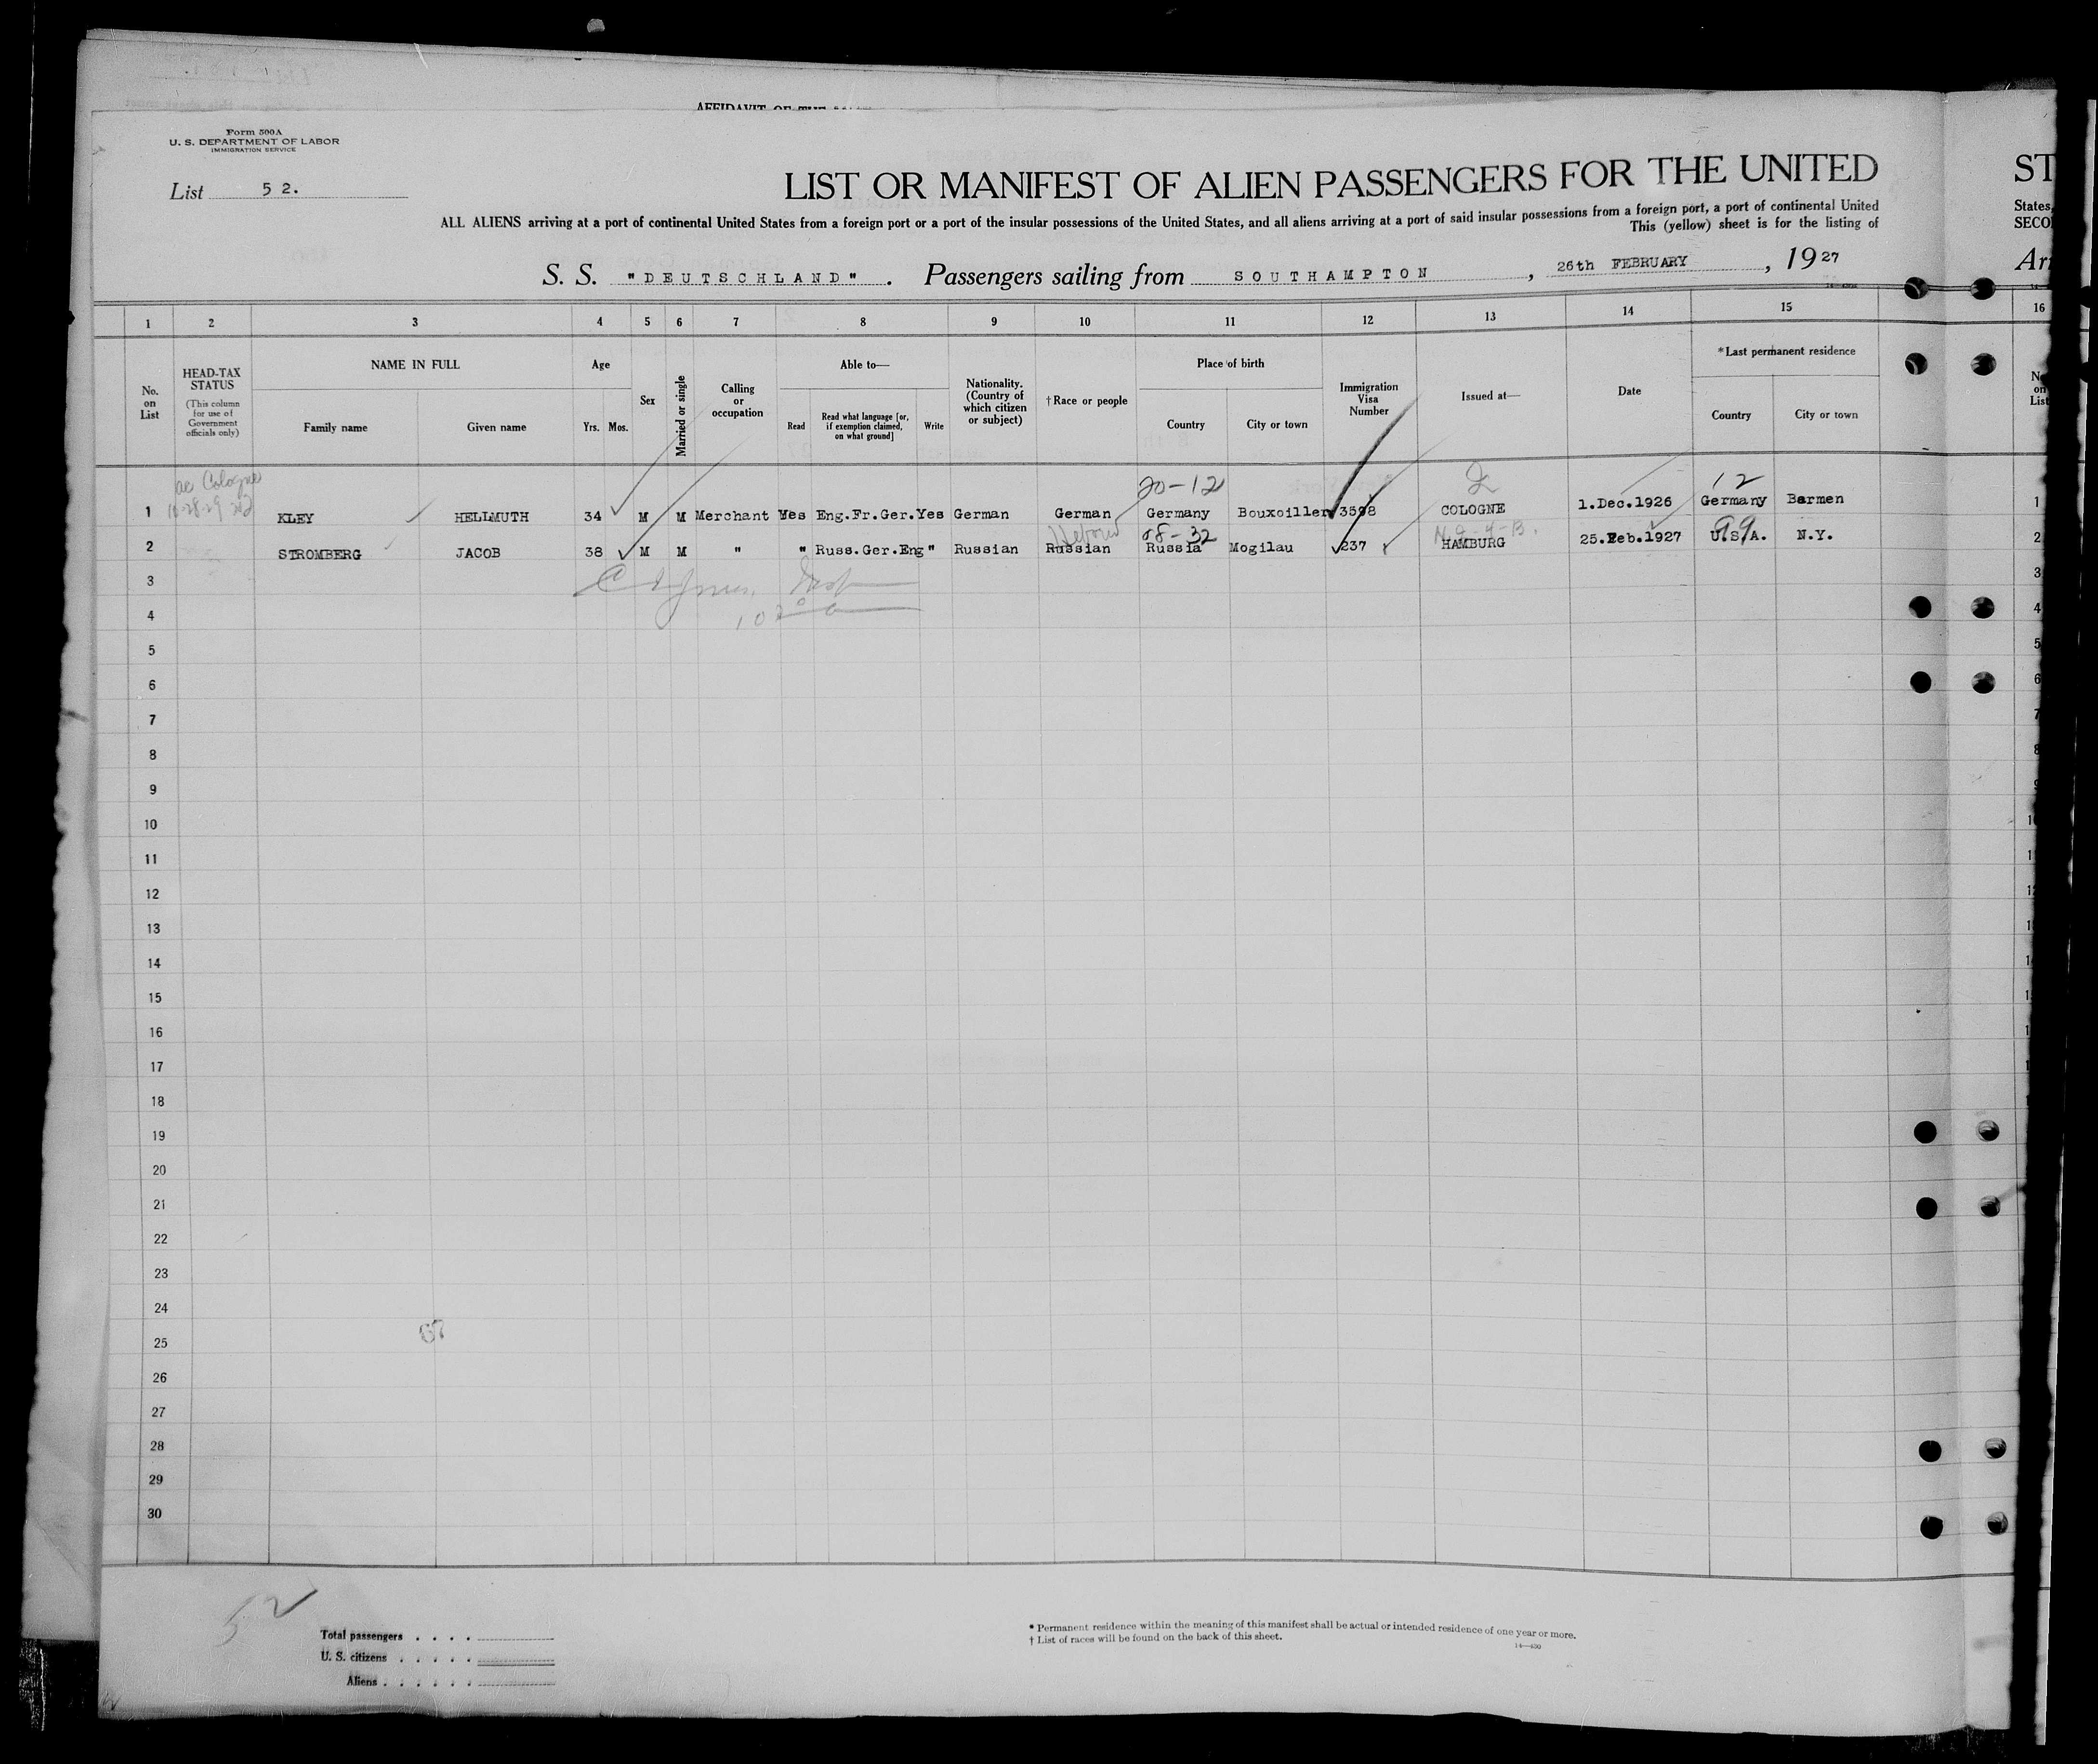 AFFIDAVIT OF THE
Form 500A
U. S. DEPARTMENT OF LABOR
IMMIGRATION SERVICE
List 52.
LIST OR MANIFEST OF ALIEN PASSENGERS FOR THE UNITED
ST
ALL ALIENS arriving at a port of continental United States from a foreign port or a port of the insular possessions of the United States, and all aliens arriving at a port of said insular possessions from a foreign port, a port of continental United
States,
This (yellow) sheet is for the listing of
SECO
S. S. "DEUTSCHLAND". Passengers sailing from SOUTHAMPTON, 26th FEBRUARY, 1927
Arr
1 2 3 4 5 6 7 8 9 10 11 12 13 14 15 16
No. on List
HEAD-TAX STATUS
(This column for use of Government officials only)
NAME IN FULL
Family name
Given name
Age
Yrs. Mos.
Sex
Married or single
Calling or occupation
Able to—
Read
Read what language [or, if exemption claimed, on what ground]
Write
Nationality. (Country of which citizen or subject)
†Race or people
Place of birth
Country
City or town
Immigration Visa Number
Issued at—
Date
*Last permanent residence
Country
City or town
No. on List
ac Cologne
20-12
12
1 KLEY HELLMUTH 34 M M Merchant Yes Eng.Fr.Ger. Yes German German Germany Bouxoiller 3598 COLOGNE 1.Dec.1926 Germany Barmen 1
Hebrew 08-32 99
2 STROMBERG JACOB 38 M M " " Russ.Ger.Eng " Russian Russian Russia Mogilau 237 HAMBURG 25.Feb.1927 U.S.A. N.Y. 2
3 3
4 4
5 5
6 6
7 7
8 8
9 9
10
11
12
13
14
15
16
17
18
19
20
21
22
23
24
25
26
27
28
29
30
52
Total passengers . . . .
U. S. citizens . . . . .
Aliens . . . . . .
* Permanent residence within the meaning of this manifest shall be actual or intended residence of one year or more.
† List of races will be found on the back of this sheet.
14—430